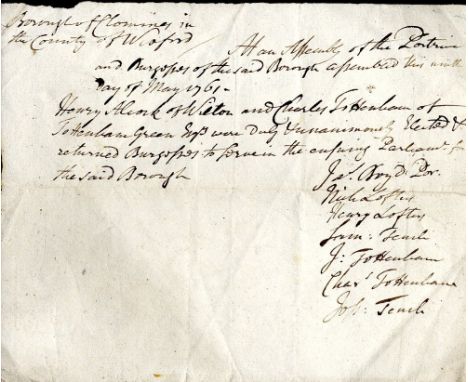 Borough of Clomines in
the County of Wexford
At an Assembly of the Portrive
and Burgesses of the said Borough assembled this ninth
Day of May 1761-
Henry Alcock of Wilton and Charles Tottenham of
Tottenham Green Esqrs were Duly & unanimously Elected &
returned Burgesses to serve in the ensuing Parliamt. for
the said Borough
Jas. Boyd Por.
Nich Loftus
Henry Loftus
Sam: Tench
J: Tottenham
Chars Tottenham
Jos: Tench